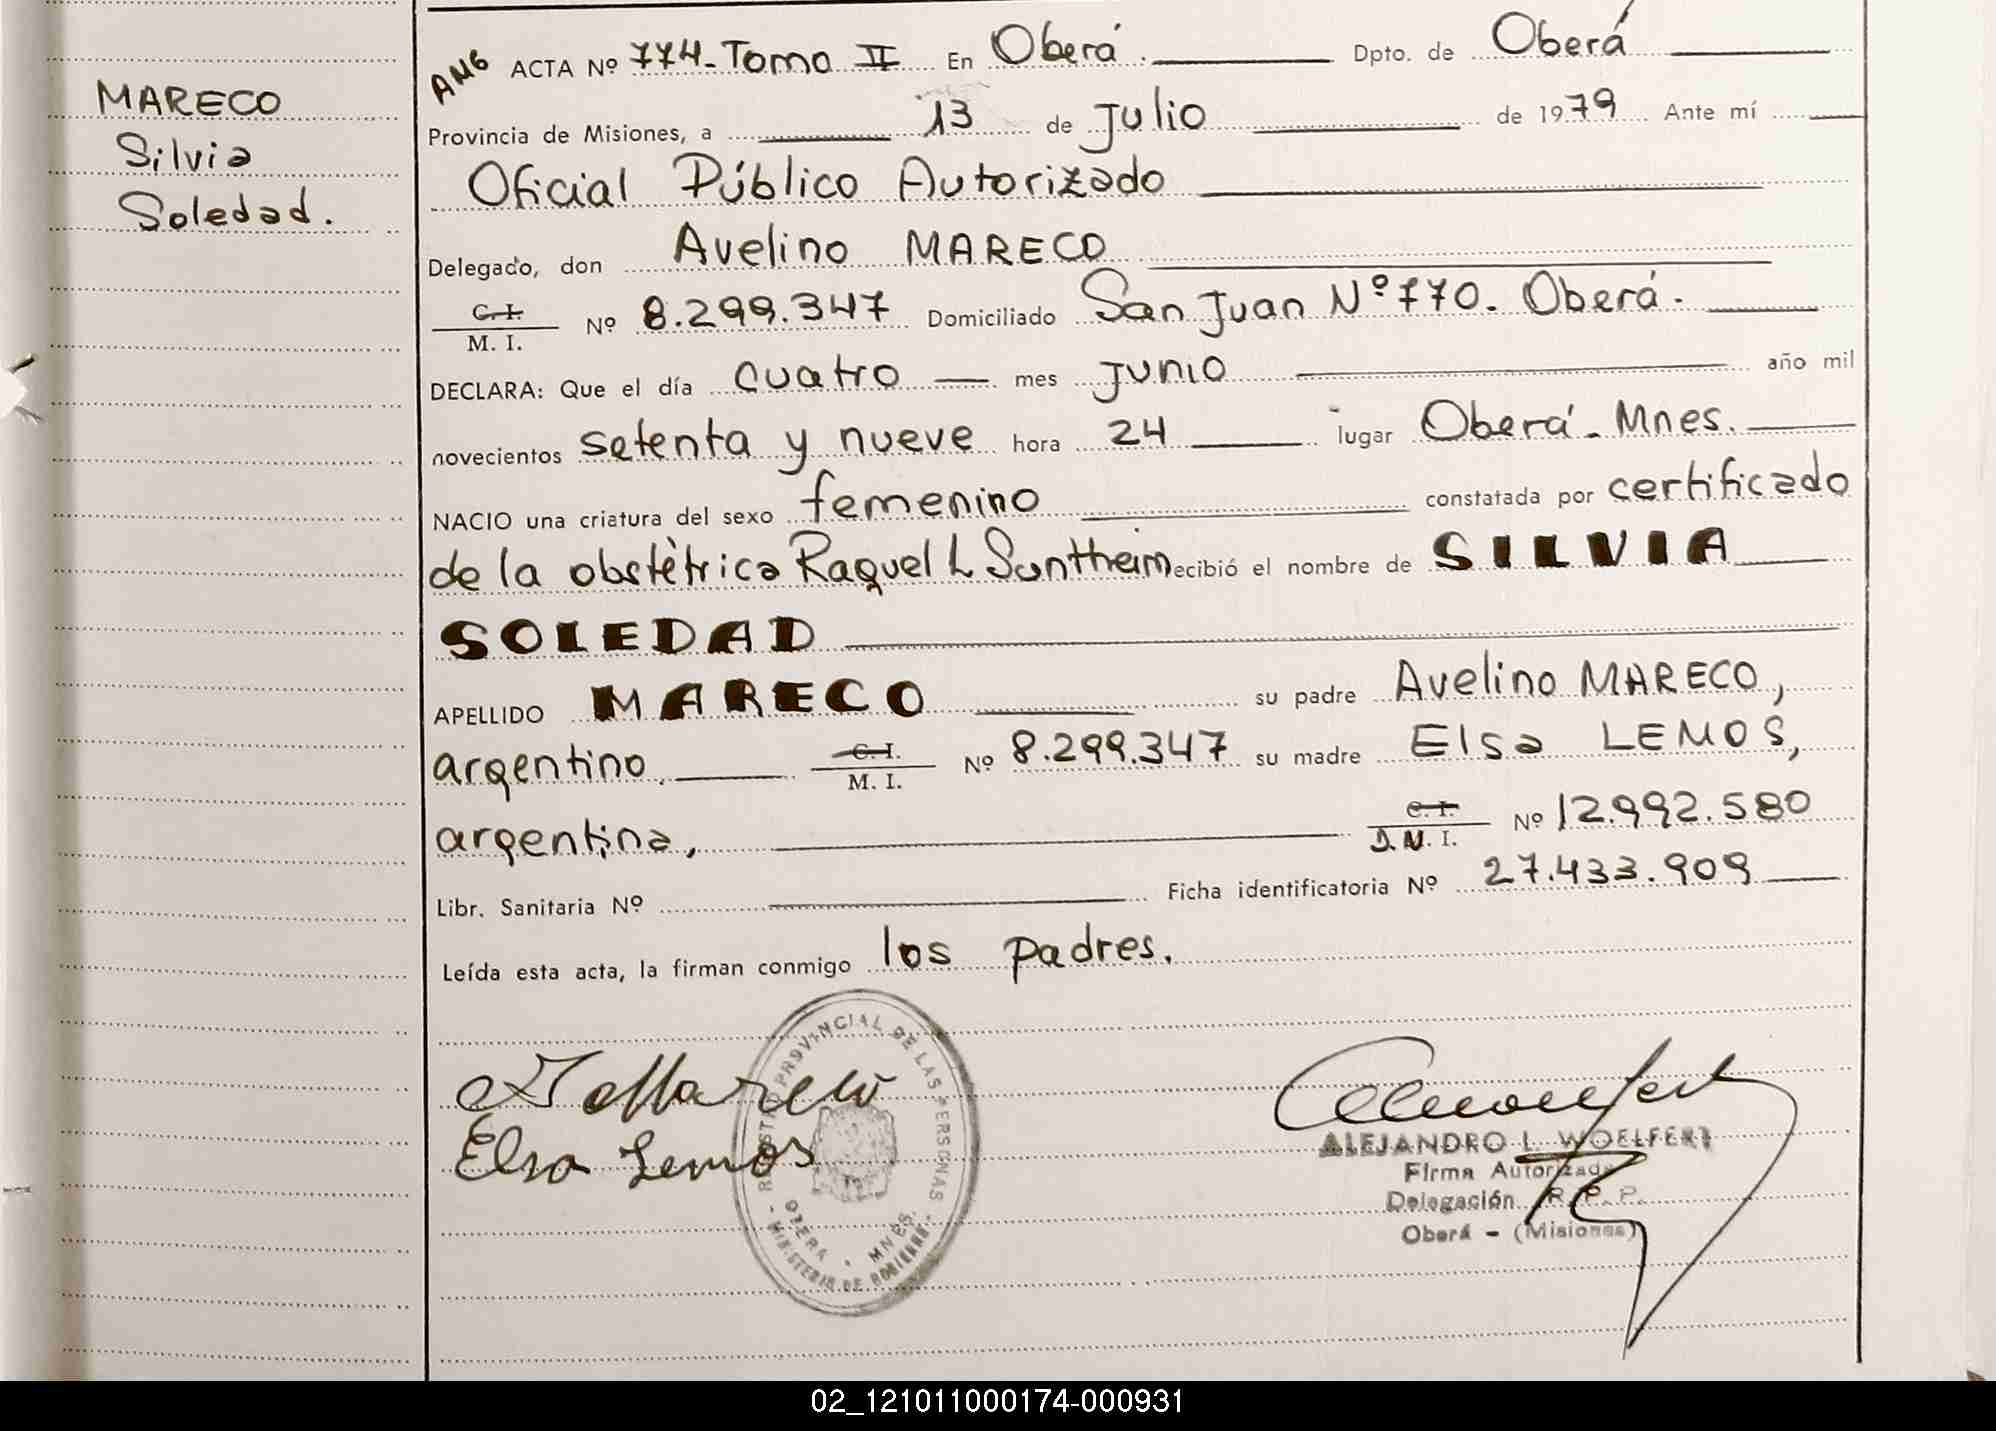 MARECO
Silvia
Soledad.
ANG ACTA Nº 774-Tomo II En Oberá. Dpto. de Oberá
Provincia de Misiones, a 13 de Julio de 1979 Ante mí
Oficial Público Autorizado
Delegado, don Avelino MARECO
C.I.
M. I. Nº 8.299.347 Domiciliado San Juan Nº 770. Oberá.
DECLARA: Que el día cuatro mes Junio año mil
novecientos setenta y nueve hora 24 lugar Oberá-Mnes.
NACIO una criatura del sexo femenino constatada por certificado
de la obstètrica Raquel L Suntheim ecibió el nombre de SILVIA
SOLEDAD
APELLIDO MARECO su padre Avelino MARECO,
argentino. C.I.
M. I. Nº 8.299.347 su madre Elsa LEMOS,
argentina, C.I.
D.N.I. Nº 12.992.580
Libr. Sanitaria Nº Ficha identificatoria Nº 27.433.909
Leída esta acta, la firman conmigo los padres.
Elsa Lemos
REGISTRO PROVINCIAL DE LAS PERSONAS
OBERA - MNES.
- MINISTERIO DE GOBIERNO -
ALEJANDRO L. WOELFERT
Firma Autorizada
Delegación R. P. P.
Oberá - (Misiones)
02_121011000174-000931